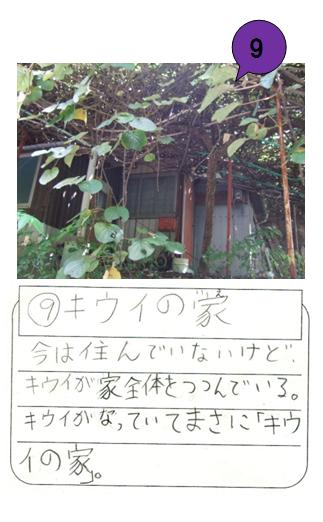 9
⑨キウイの家
いえ
今は住んでいないけど、
キウイが家全体をつつんでいる。
キウイがなっていてまさに「キウ
イの家」。